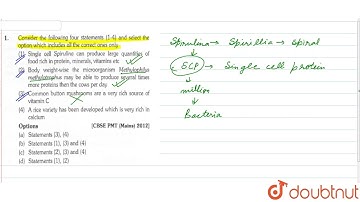 1. Consider the following four statements (1-4) and select the
option which includes all the correct ones only.
(1) Single cell Spirulina can produce large quantities of
food rich in protein, minerals, vitamins etc
(2) Body weightwise the microorganism Methylophilus
methylotrophus may be able to produce several times
more proteins then the cows per day.
(3) Common button mushrooms are a very rich source of
vitamin C
(4) A rice variety has been developed which is very rich in
calcium
Options [CBSE PMT (Mains) 2012]
(a) Statements (3), (4)
(b) Statements (1), (3) and (4)
(c) Statements (2), (3) and (4)
(d) Statements (1), (2)
Spirulina → Spirillia → Spiral
SCP → Single cell protein
million
Bacteria
doubtnut